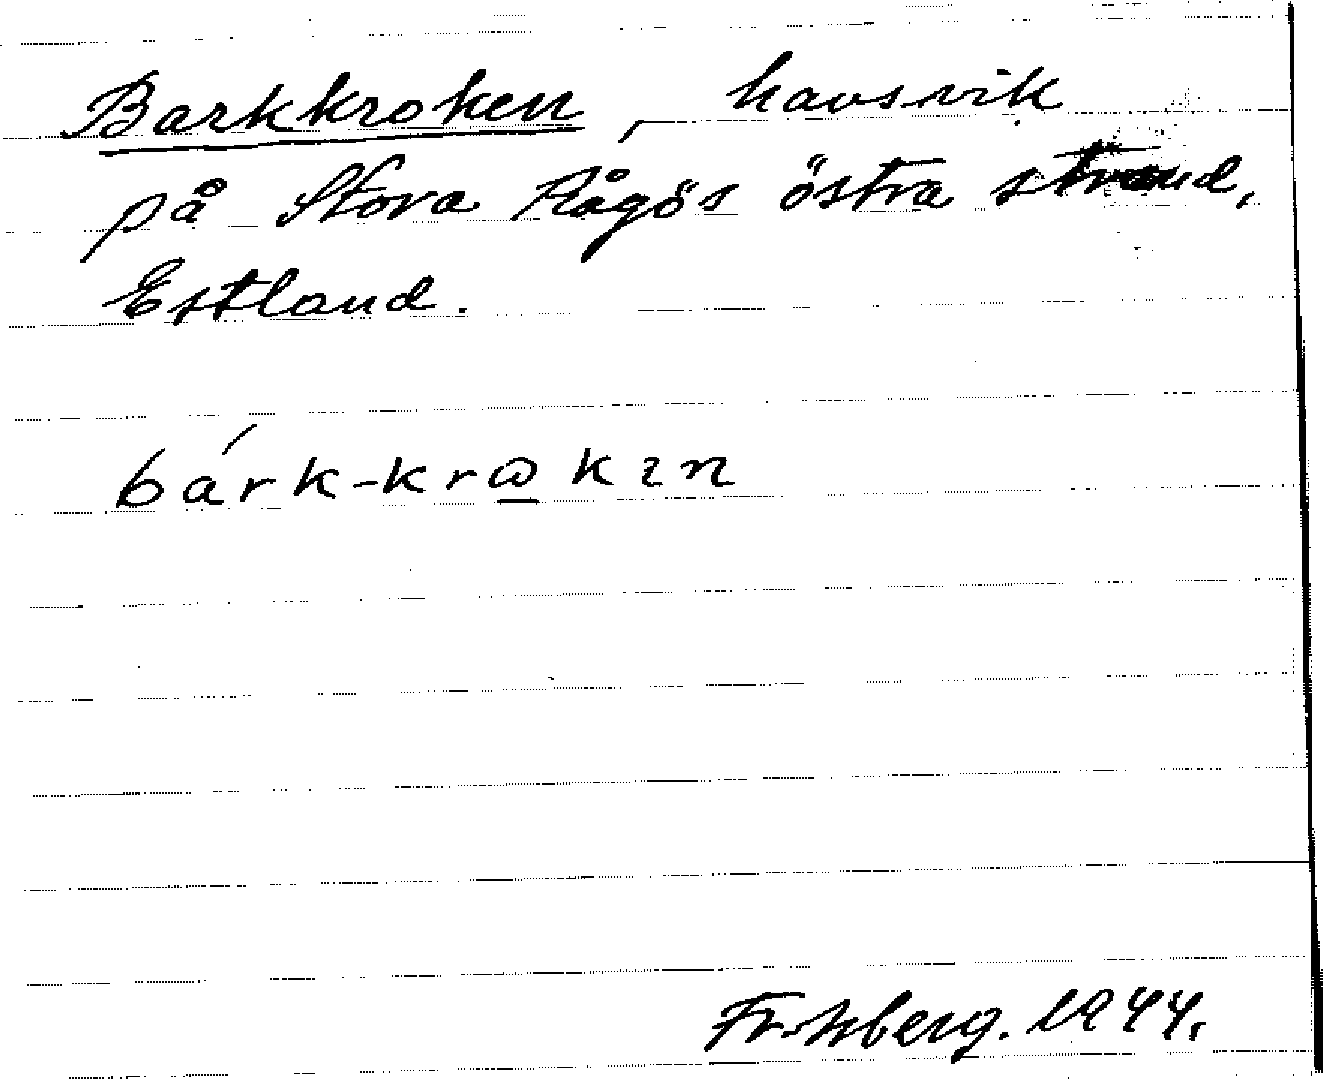 Barkkroken, havsvik
på Stora Rågös östra strand,
Estland.
bárk-krω̲kın
1944.